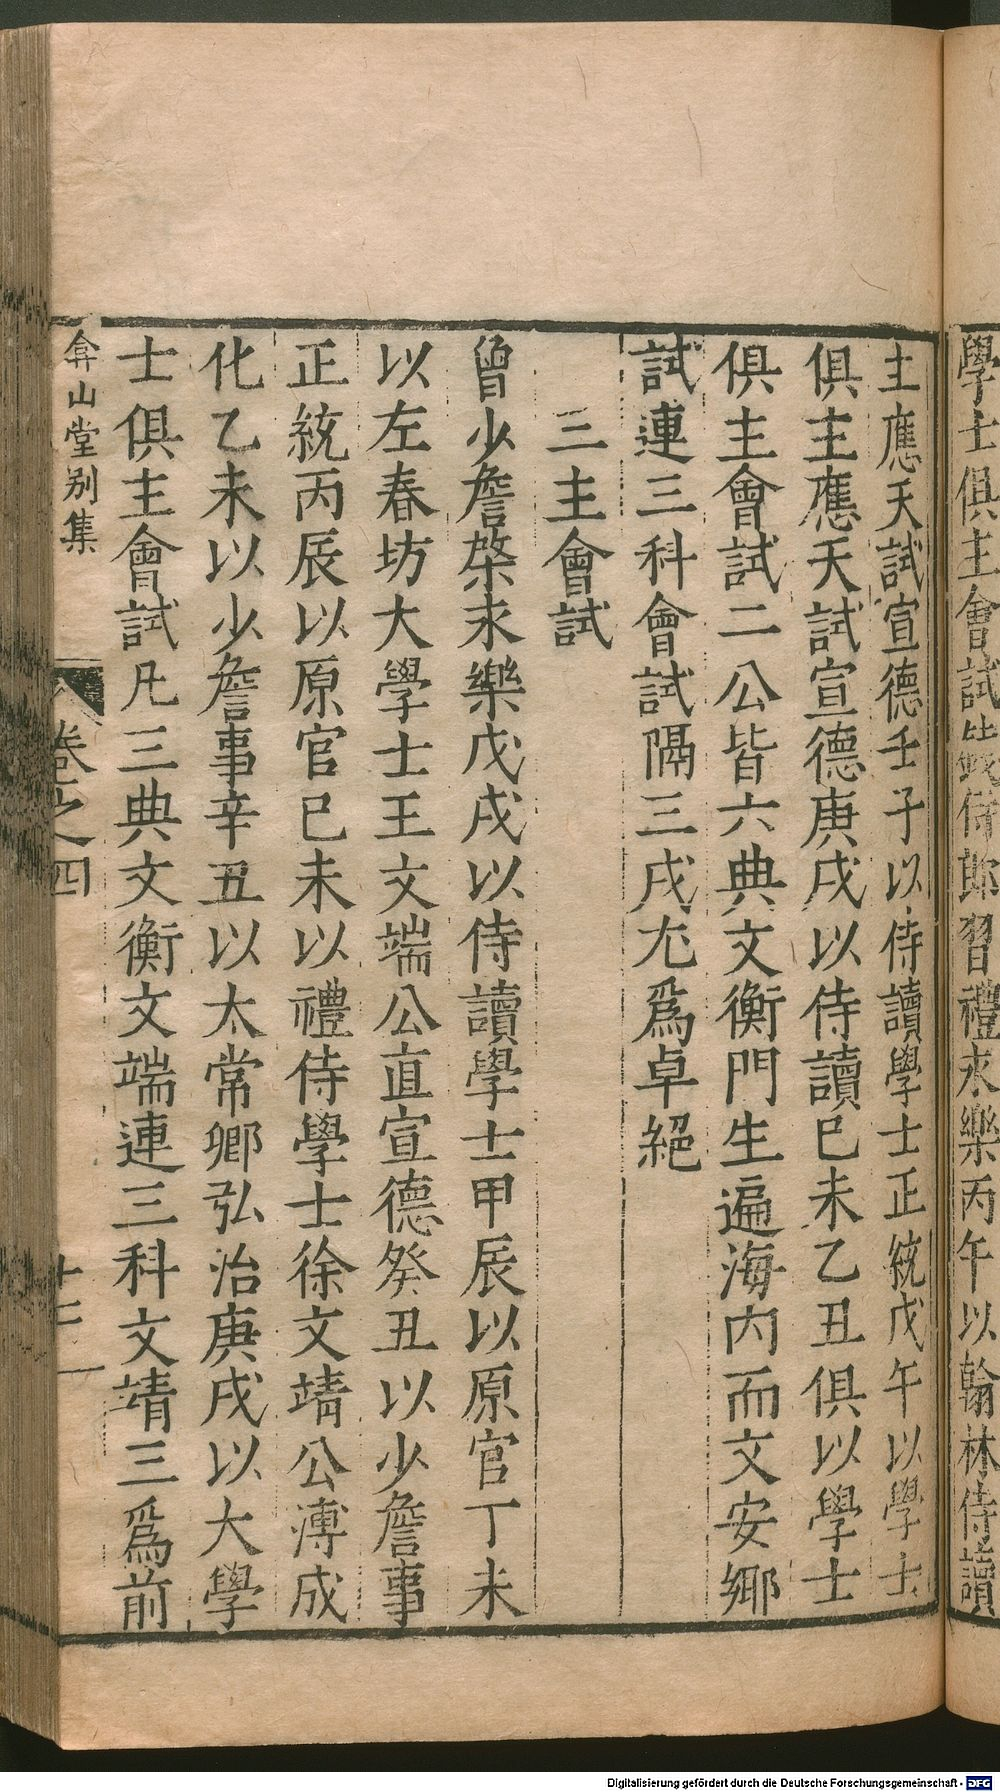 學士俱主會試錢侍郎習禮永樂丙午以翰林侍讀
主應天試宣德壬子以侍讀學士正統戊午以學士
俱主應天試宣德庚戌以侍讀已未乙丑俱以學士
俱主會試二公皆六典文衡門生遍海内而文安鄉
試連三科會試隔三戌尤爲卓絕
三主會試
曾少詹棨永樂戊戌以侍讀學士甲辰以原官丁未
以左春坊大學士王文端公直宣德癸丑以少詹事
正統丙辰以原官已未以禮侍學士徐文靖公溥成
化乙未以少詹事辛丑以太常卿弘治庚戌以大學
士俱主會試凡三典文衡文端連三科文靖三爲前
弇山堂别集 卷之四 十二
Digitalisierung gefördert durch die Deutsche Forschungsgemeinschaft - DFG